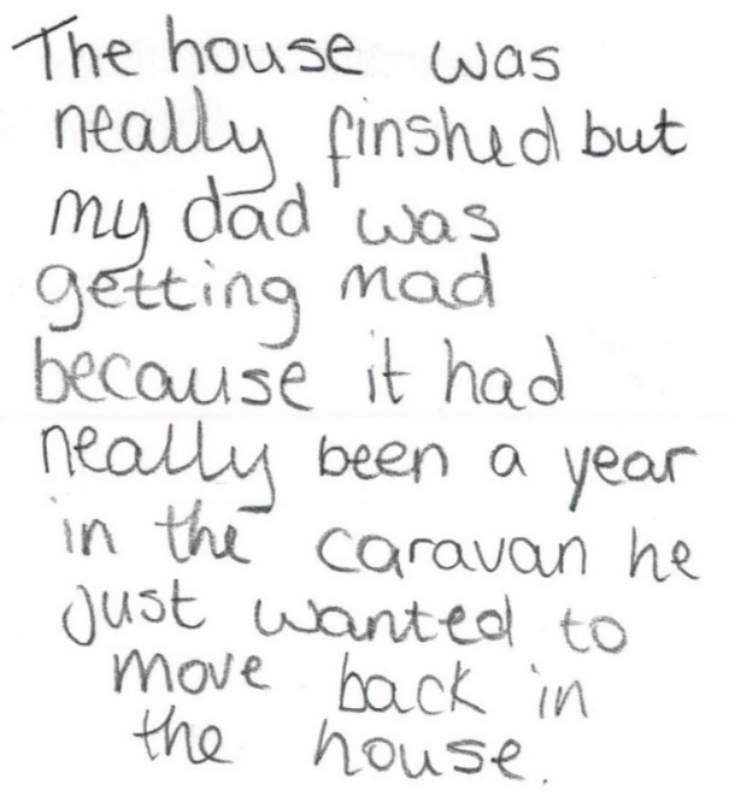 The house was
neally finshed but
my dad was
getting mad
because it had
neally been a year
in the caravan he
just wanted to
move back in
the house.